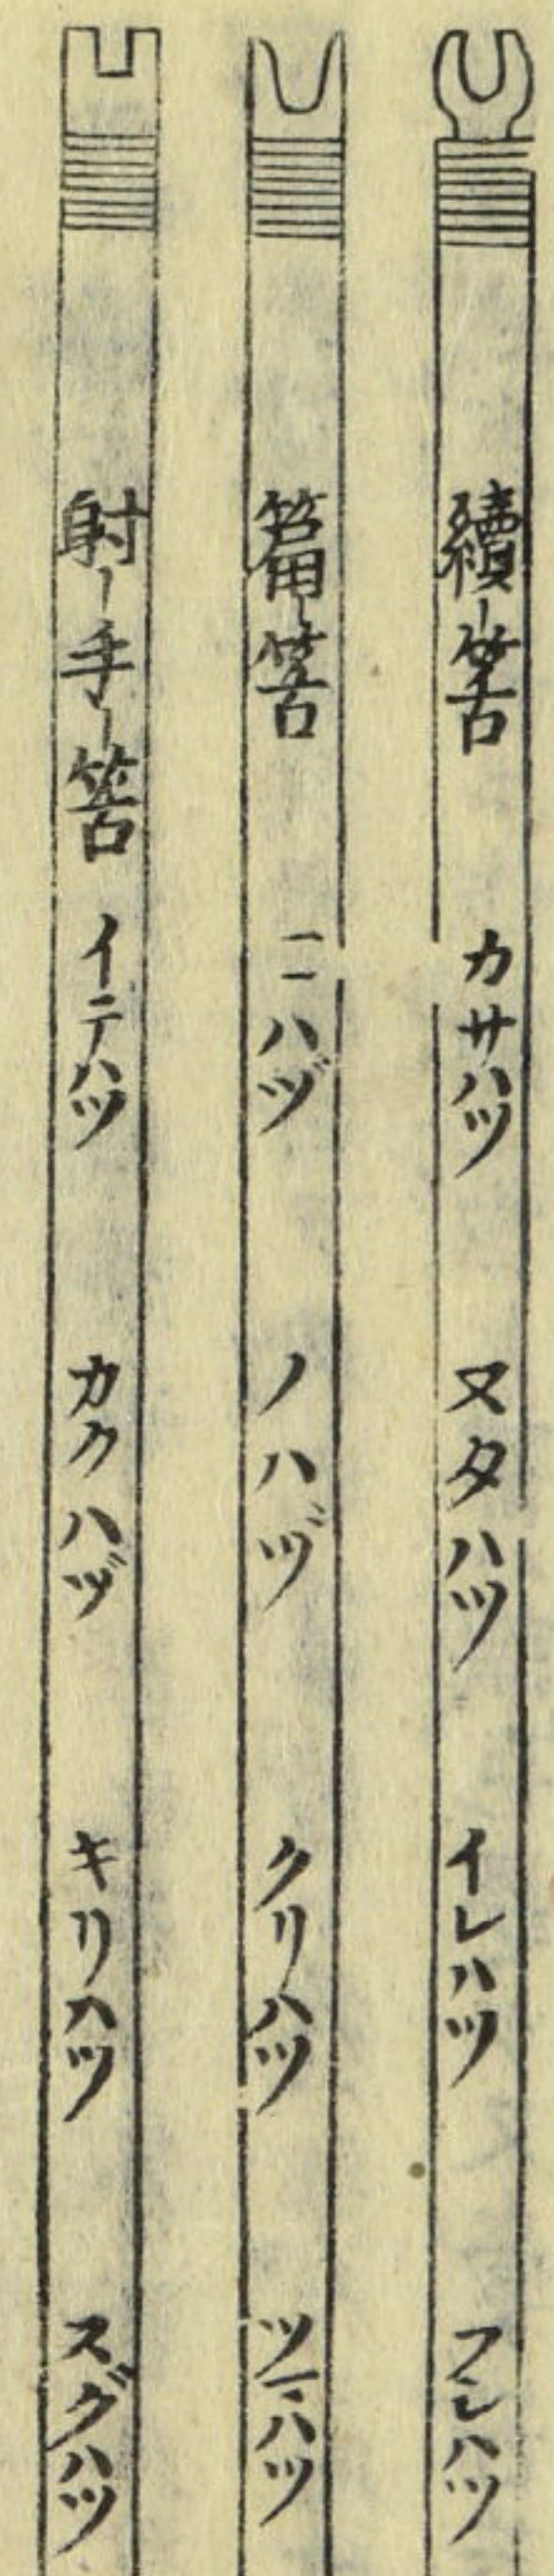 續-筈 カサハツ ヌタハツ イレハツ フシハツ
筈 ニハヅ ノハヅ クリハツ ハツ
射-手-筈 イテハツ カクハヅ キリハツ スグハツ